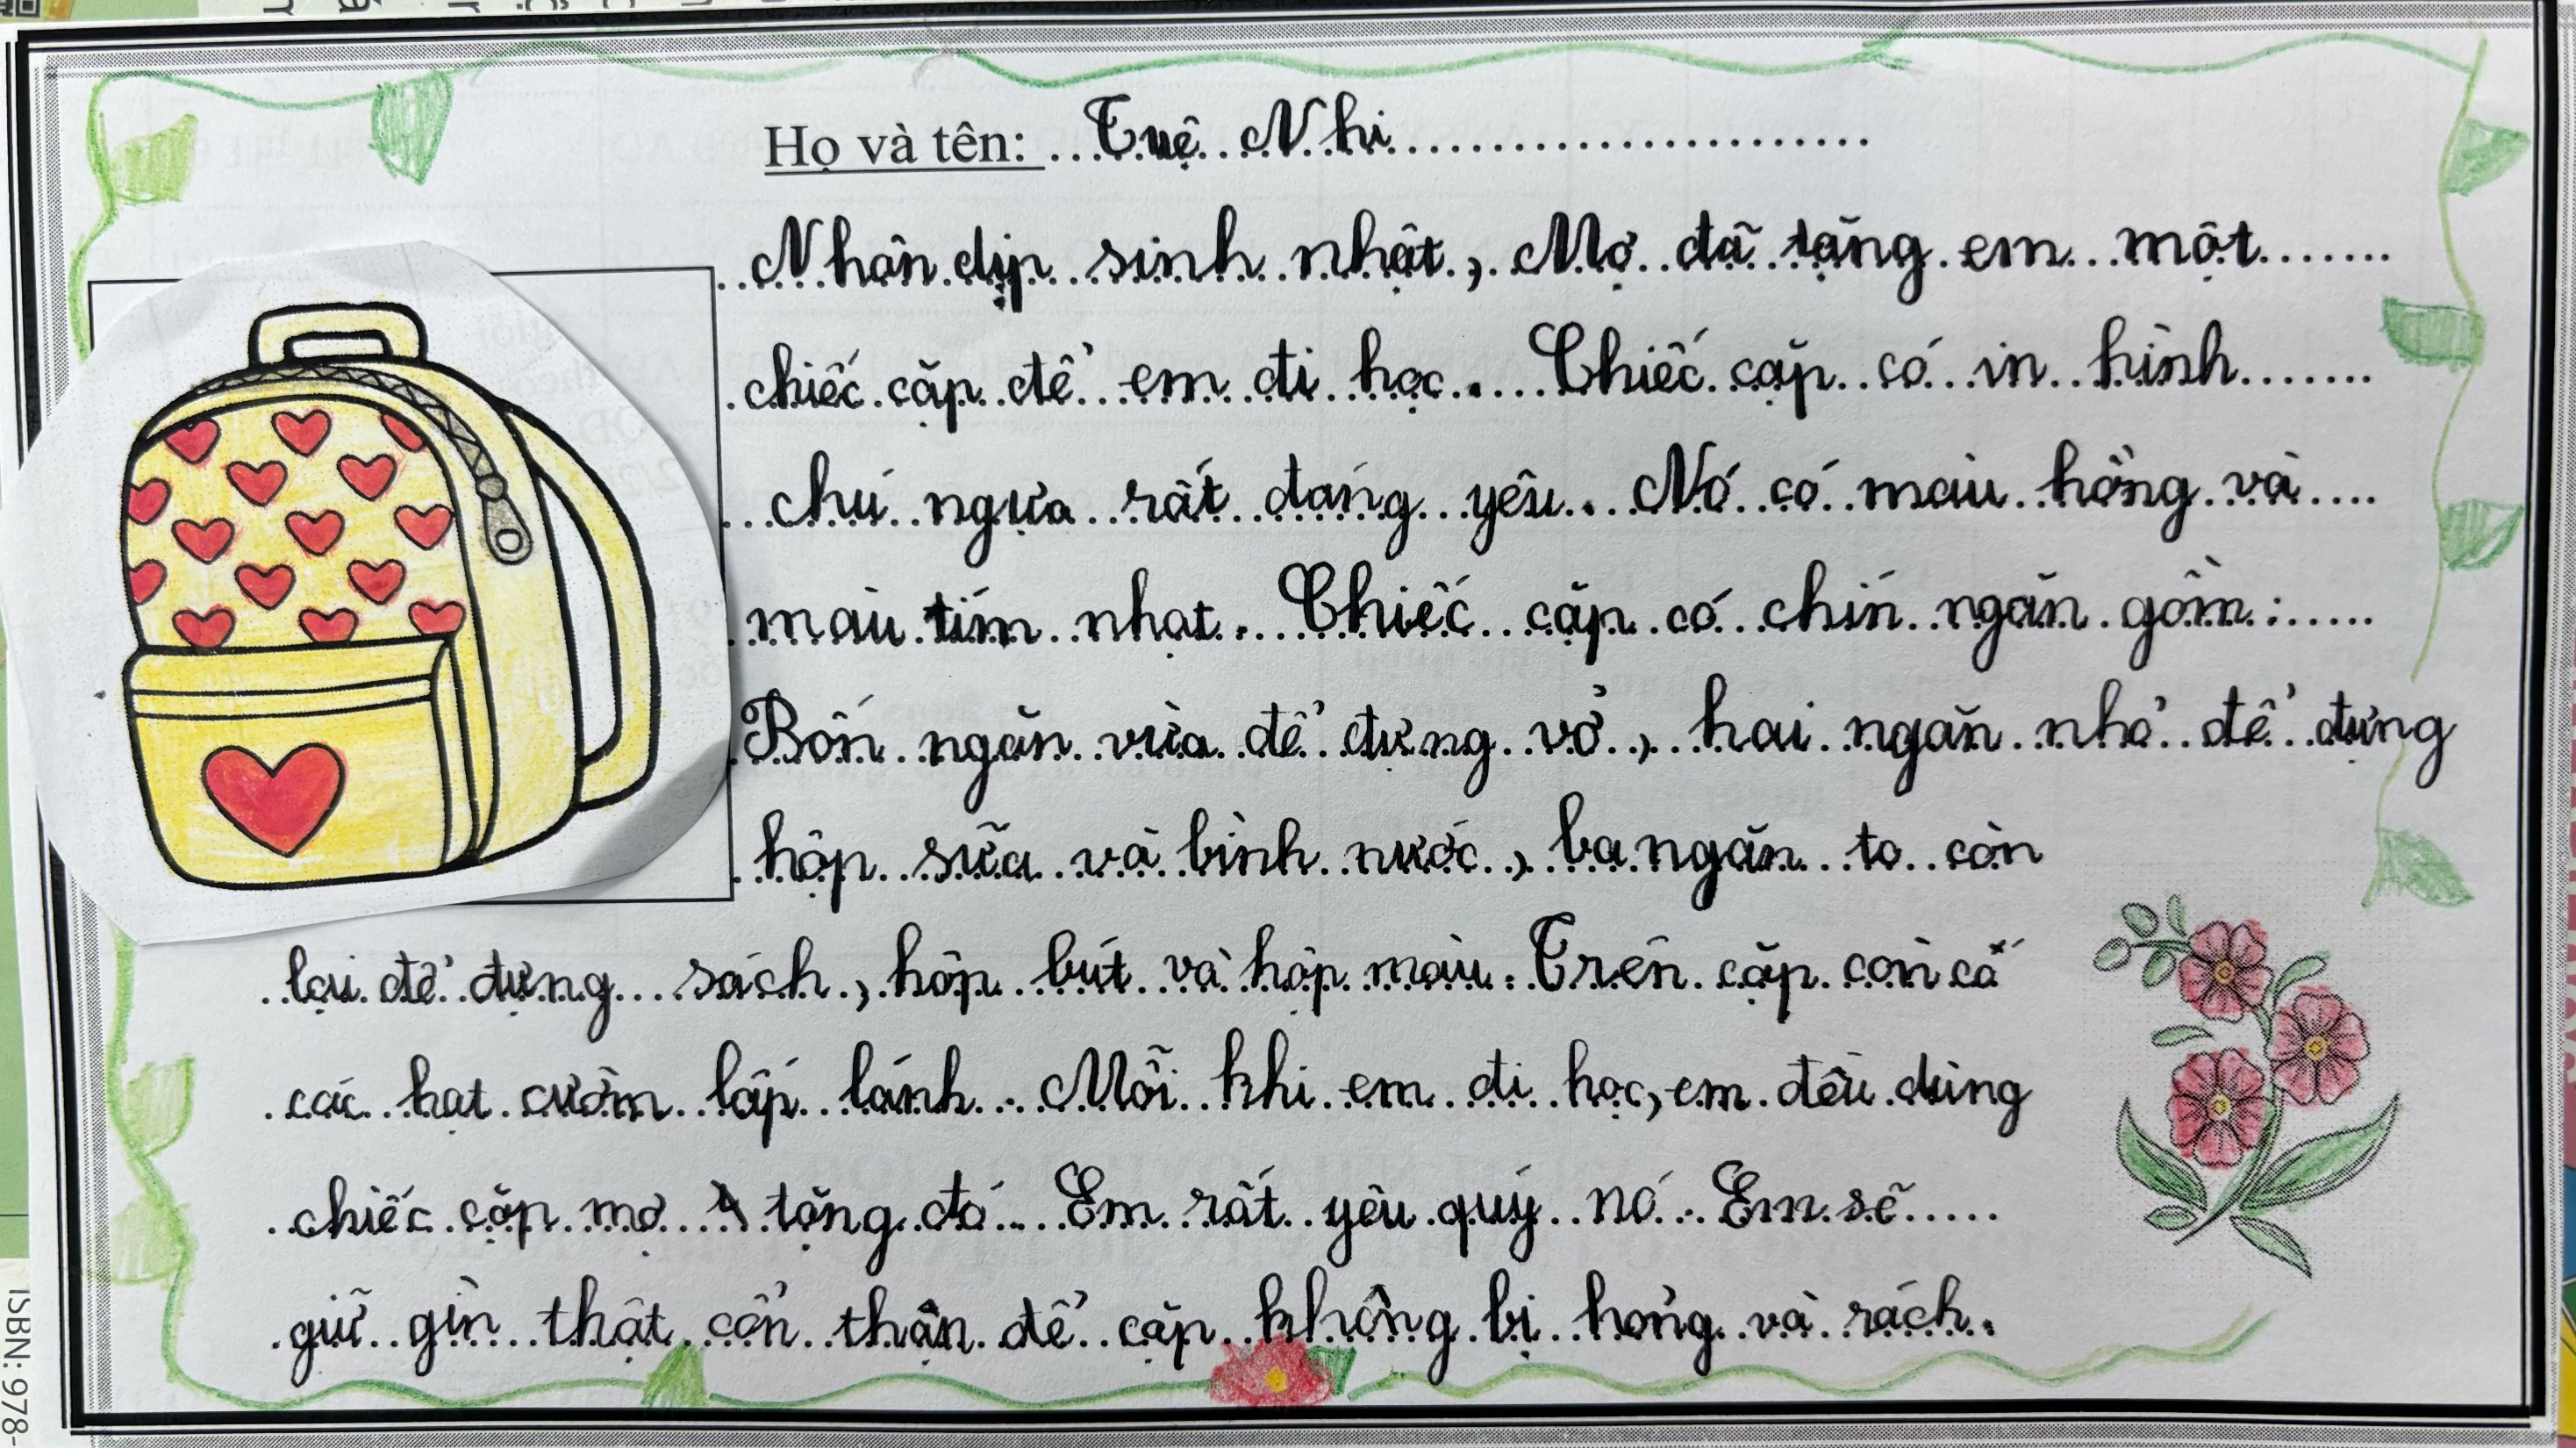 Họ và tên: Tuệ Nhi
Nhân dịp sinh nhật, Mợ đã tặng em một
chiếc cặp để em đi học. Chiếc cặp có in hình
chú ngựa rất đáng yêu. Nó có màu hồng và
màu tím nhạt. Chiếc cặp có chín ngăn gồm:
Bốn ngăn vừa để đựng vở, hai ngăn nhỏ để đựng
hộp sữa và bình nước, ba ngăn to còn
lại để đựng sách, hộp bút và hộp màu. Trên cặp còn cá
các hạt cườm lấp lánh. Mỗi khi em đi học, em đều dùng
chiếc cặp mợ tặng đó. Em rất yêu quý nó. Em sẽ
giữ gìn thật cẩn thận để cặp không bị hỏng và rách.
ISBN: 978-